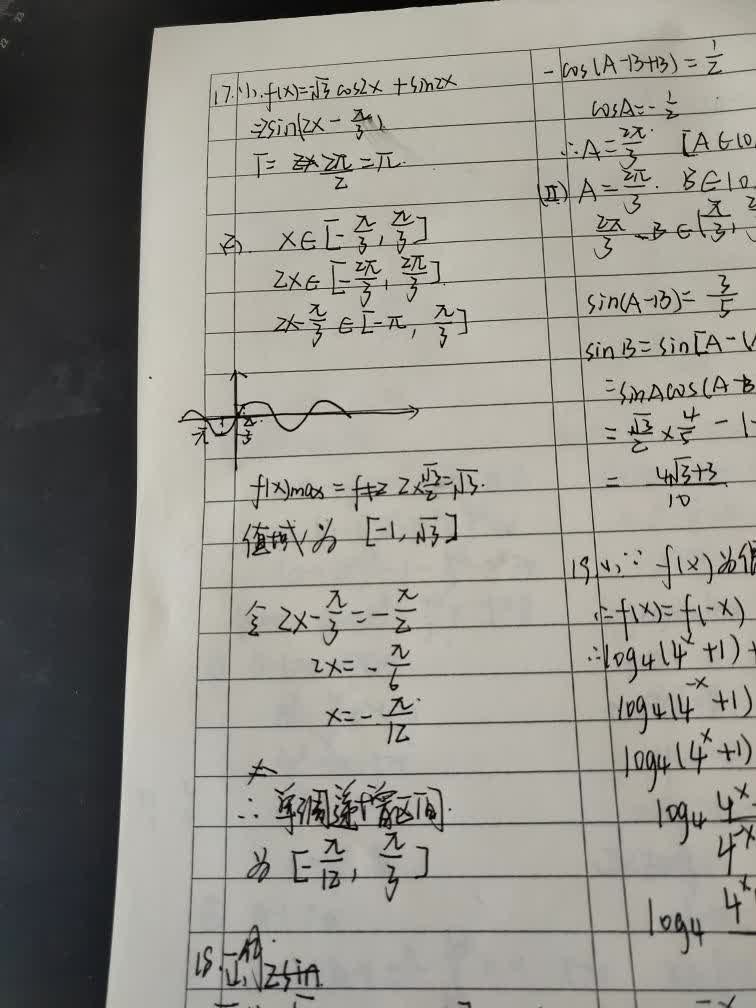 17.(1). f(x)=-√3 cos2x + sin2x
=2sin(2x - π/3).
T= 2π/2 =π.
(2). x∈[-π/3, π/3]
2x∈[-2π/3, 2π/3].
2x-π/3 ∈[-π, π/3]
-π
π/3
f(x)max = 2×√3/2=√3.
值域为 [-1, √3]
令 2x-π/3=-π/2
2x= -π/6
x=-π/12
∴ 单调递增区间.
为 [-π/12, π/3]
18.
-cos(A-B+B)=1/2
cosA=-1/2
∴A=2π/3 [A∈(0,
(II) A=2π/3. B∈(0,
2π/3 -B ∈(π/3,
sin(A-B)=3/5
sinB=sin[A-(
=sinAcos(A-B
=√3/2×4/5 -
= 4√3+3/10
19.(1).∵ f(x)为偶
∴f(x)=f(-x)
∴log4(4^x+1)+
log4(4^-x+1)
log4(4^x+1)
log4 4^x
4^-x
log4 4^x